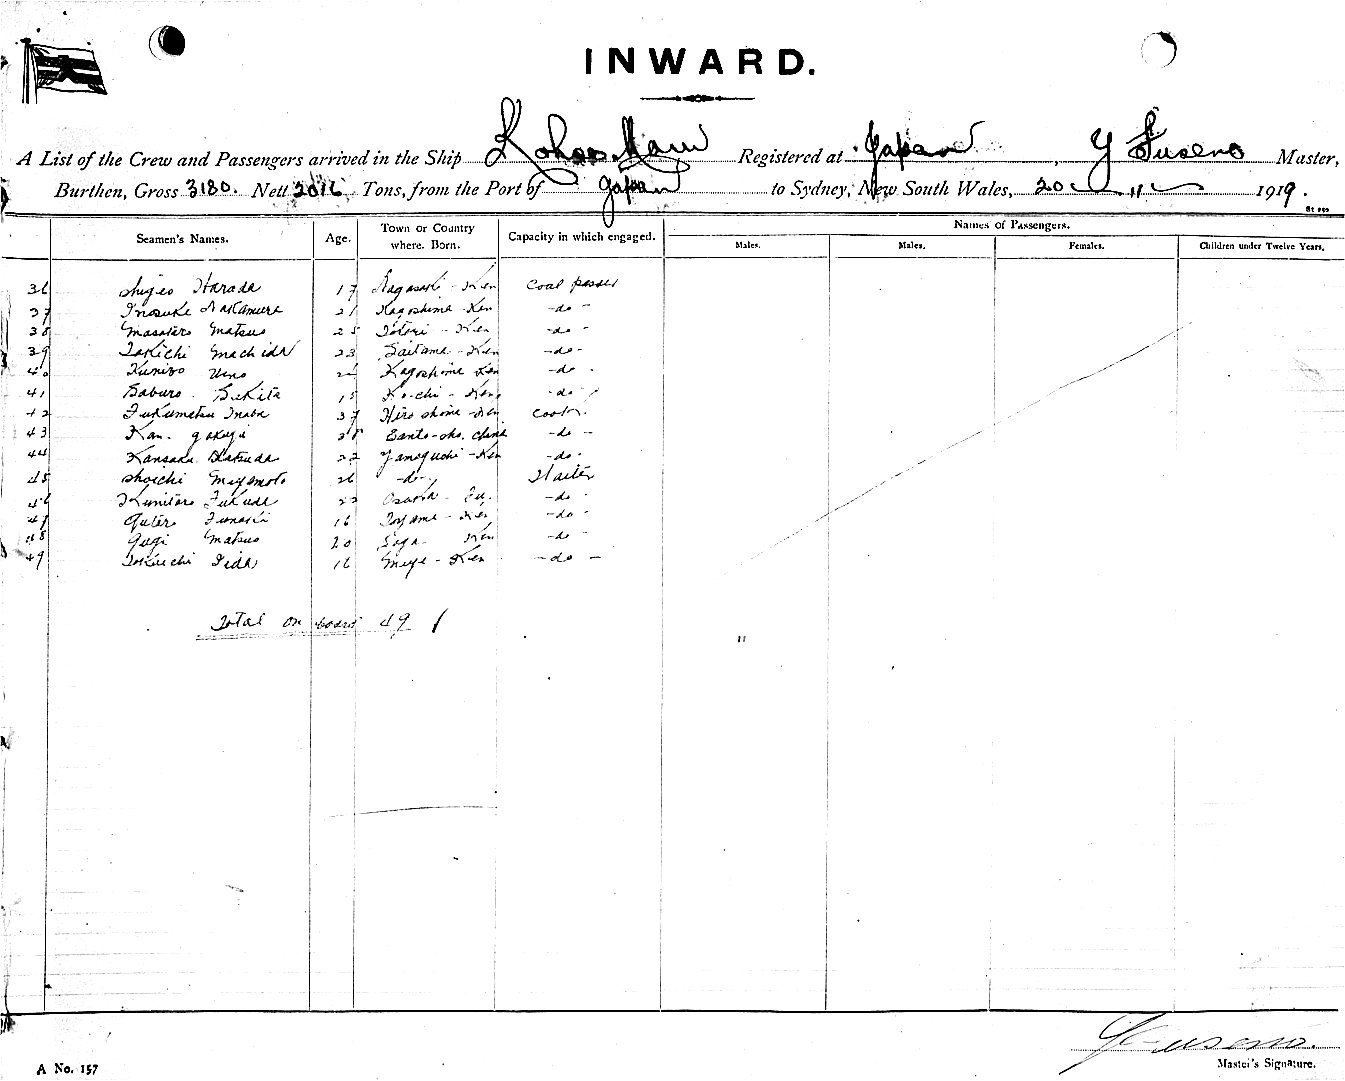 INWARD.
A List of the Crew and Passengers arrived in the Ship Kohoo Maru Registered at Japan, Y Fuseno Master,
Burthen, Gross 3180. Nett 2016 Tons, from the Port of Japan to Sydney, New South Wales, 20 11 1919.
Seamen's Names. Age. Town or Country where Born. Capacity in which engaged. Names of Passengers.
Males. Males. Females. Children under Twelve Years.
36 Shigeo Harada 17 Nagasaki-Ken Coal passer
37 Inosuke Nakamura 21 Kagoshima-Ken -do-
38 Masataro Matsuo 25 Totori-Ken -do-
39 Takichi Machida 23 Saitama-Ken -do-
40 Kunizo Ueno Kagoshima Ken -do-
41 Saburo Sekita 18 Kochi-Ken -do-
42 Fukumatsu Inaba 37 Hiroshima-Ken Cook
43 Kan Santo-sho, China -do-
44 Kansaku Katsuda 22 Yamaguchi-Ken -do-
45 Shoichi Miyamoto 26 -do- Waiter
46 Kunitaro Fukuda 22 Osaka-Fu -do-
47 Funaki 16 Toyama-Ken -do-
48 Matsuo 20 Saga Ken -do-
49 Tokuichi Iida 16 Miye-Ken -do-
Total on board 49
Y Fuseno.
Master's Signature.
A No. 157